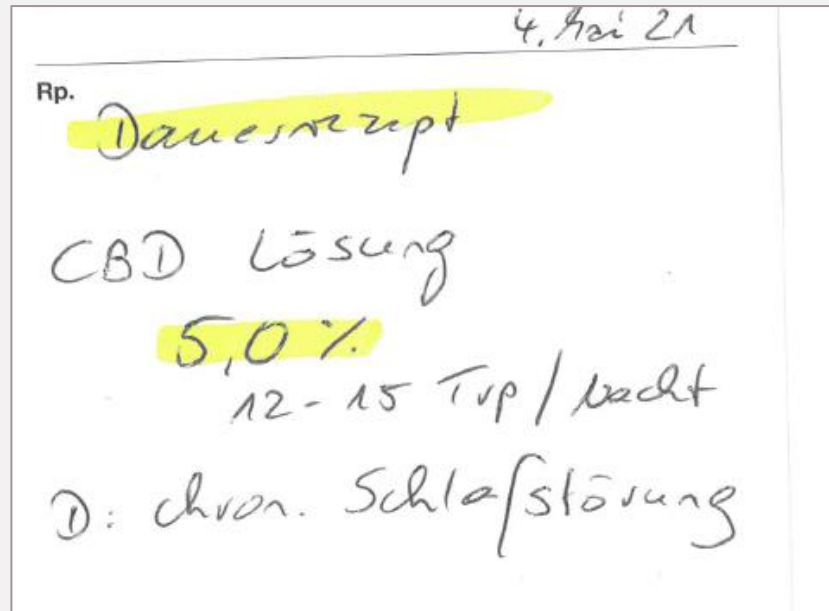 4. Mai 21
Rp.
Dauerrezept
CBD Lösung
5,0 %
12 - 15 Trp / Nacht
D: chron. Schlafstörung